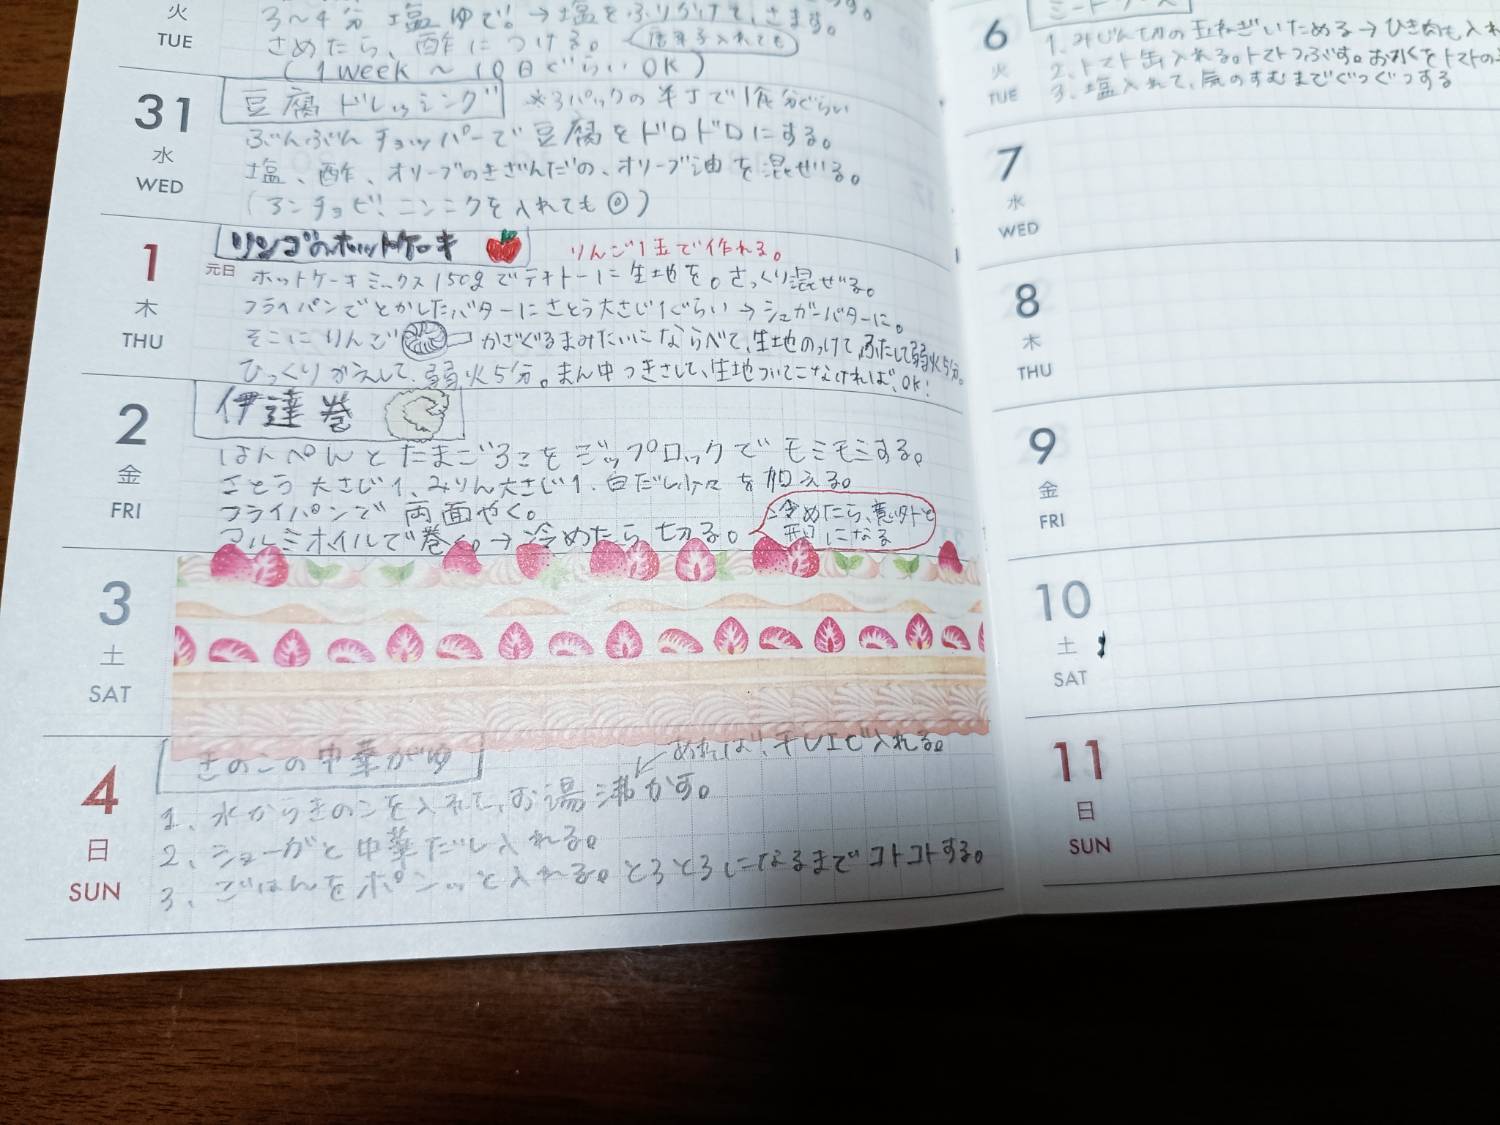 火
TUE
3〜4分 塩ゆで!→塩をふりかけて、さます。
さめたら、酢につける。
(1week〜10日ぐらいOK)
31
水
WED
豆腐ドレッシング
※3パックの半丁で1食分ぐらい
ぶんぶんチョッパーで豆腐をドロドロにする。
塩、酢、オリーブのきざんだの、オリーブ油を混ぜる。
(アンチョビ!ニンニクを入れても◎)
1
元日
木
THU
リンゴのホットケーキ
りんご1玉で作れる。
ホットケーキミックス150gでテキトーに生地を。さっくり混ぜる。
フライパンでとかしたバターにさとう大さじ1ぐらい→シュガーバターに。
そこにりんご かざぐるまみたいにならべて、生地のっけて、ふたして弱火5分。
ひっくりかえして、弱火5分。まん中つきさして、生地ついてこなければ、OK!
2
金
FRI
伊達巻
はんぺんとたまご3こをジップロックでモミモミする。
さとう大さじ1、みりん大さじ1、白だし少々を加える。
フライパンで両面やく。
アルミホイルで巻く。→冷めたら切る。
冷めたら、意外と
平らになる
3
土
SAT
4
日
SUN
きのこの中華がゆ
あれば、干しエビ入れる。
1、水からきのこを入れて、お湯沸かす。
2、ショーガと中華だし入れる。
3、ごはんをポンッと入れる。とろとろになるまでコトコトする。
6
火
TUE
ミートソース
1、みじん切りの玉ねぎいためる→ひき肉も入れ
2、トマト缶入れる。トマトつぶす。お水をトマトの
3、塩入れて、気のすむまでぐつぐつする
7
水
WED
8
木
THU
9
金
FRI
10
土
SAT
11
日
SUN